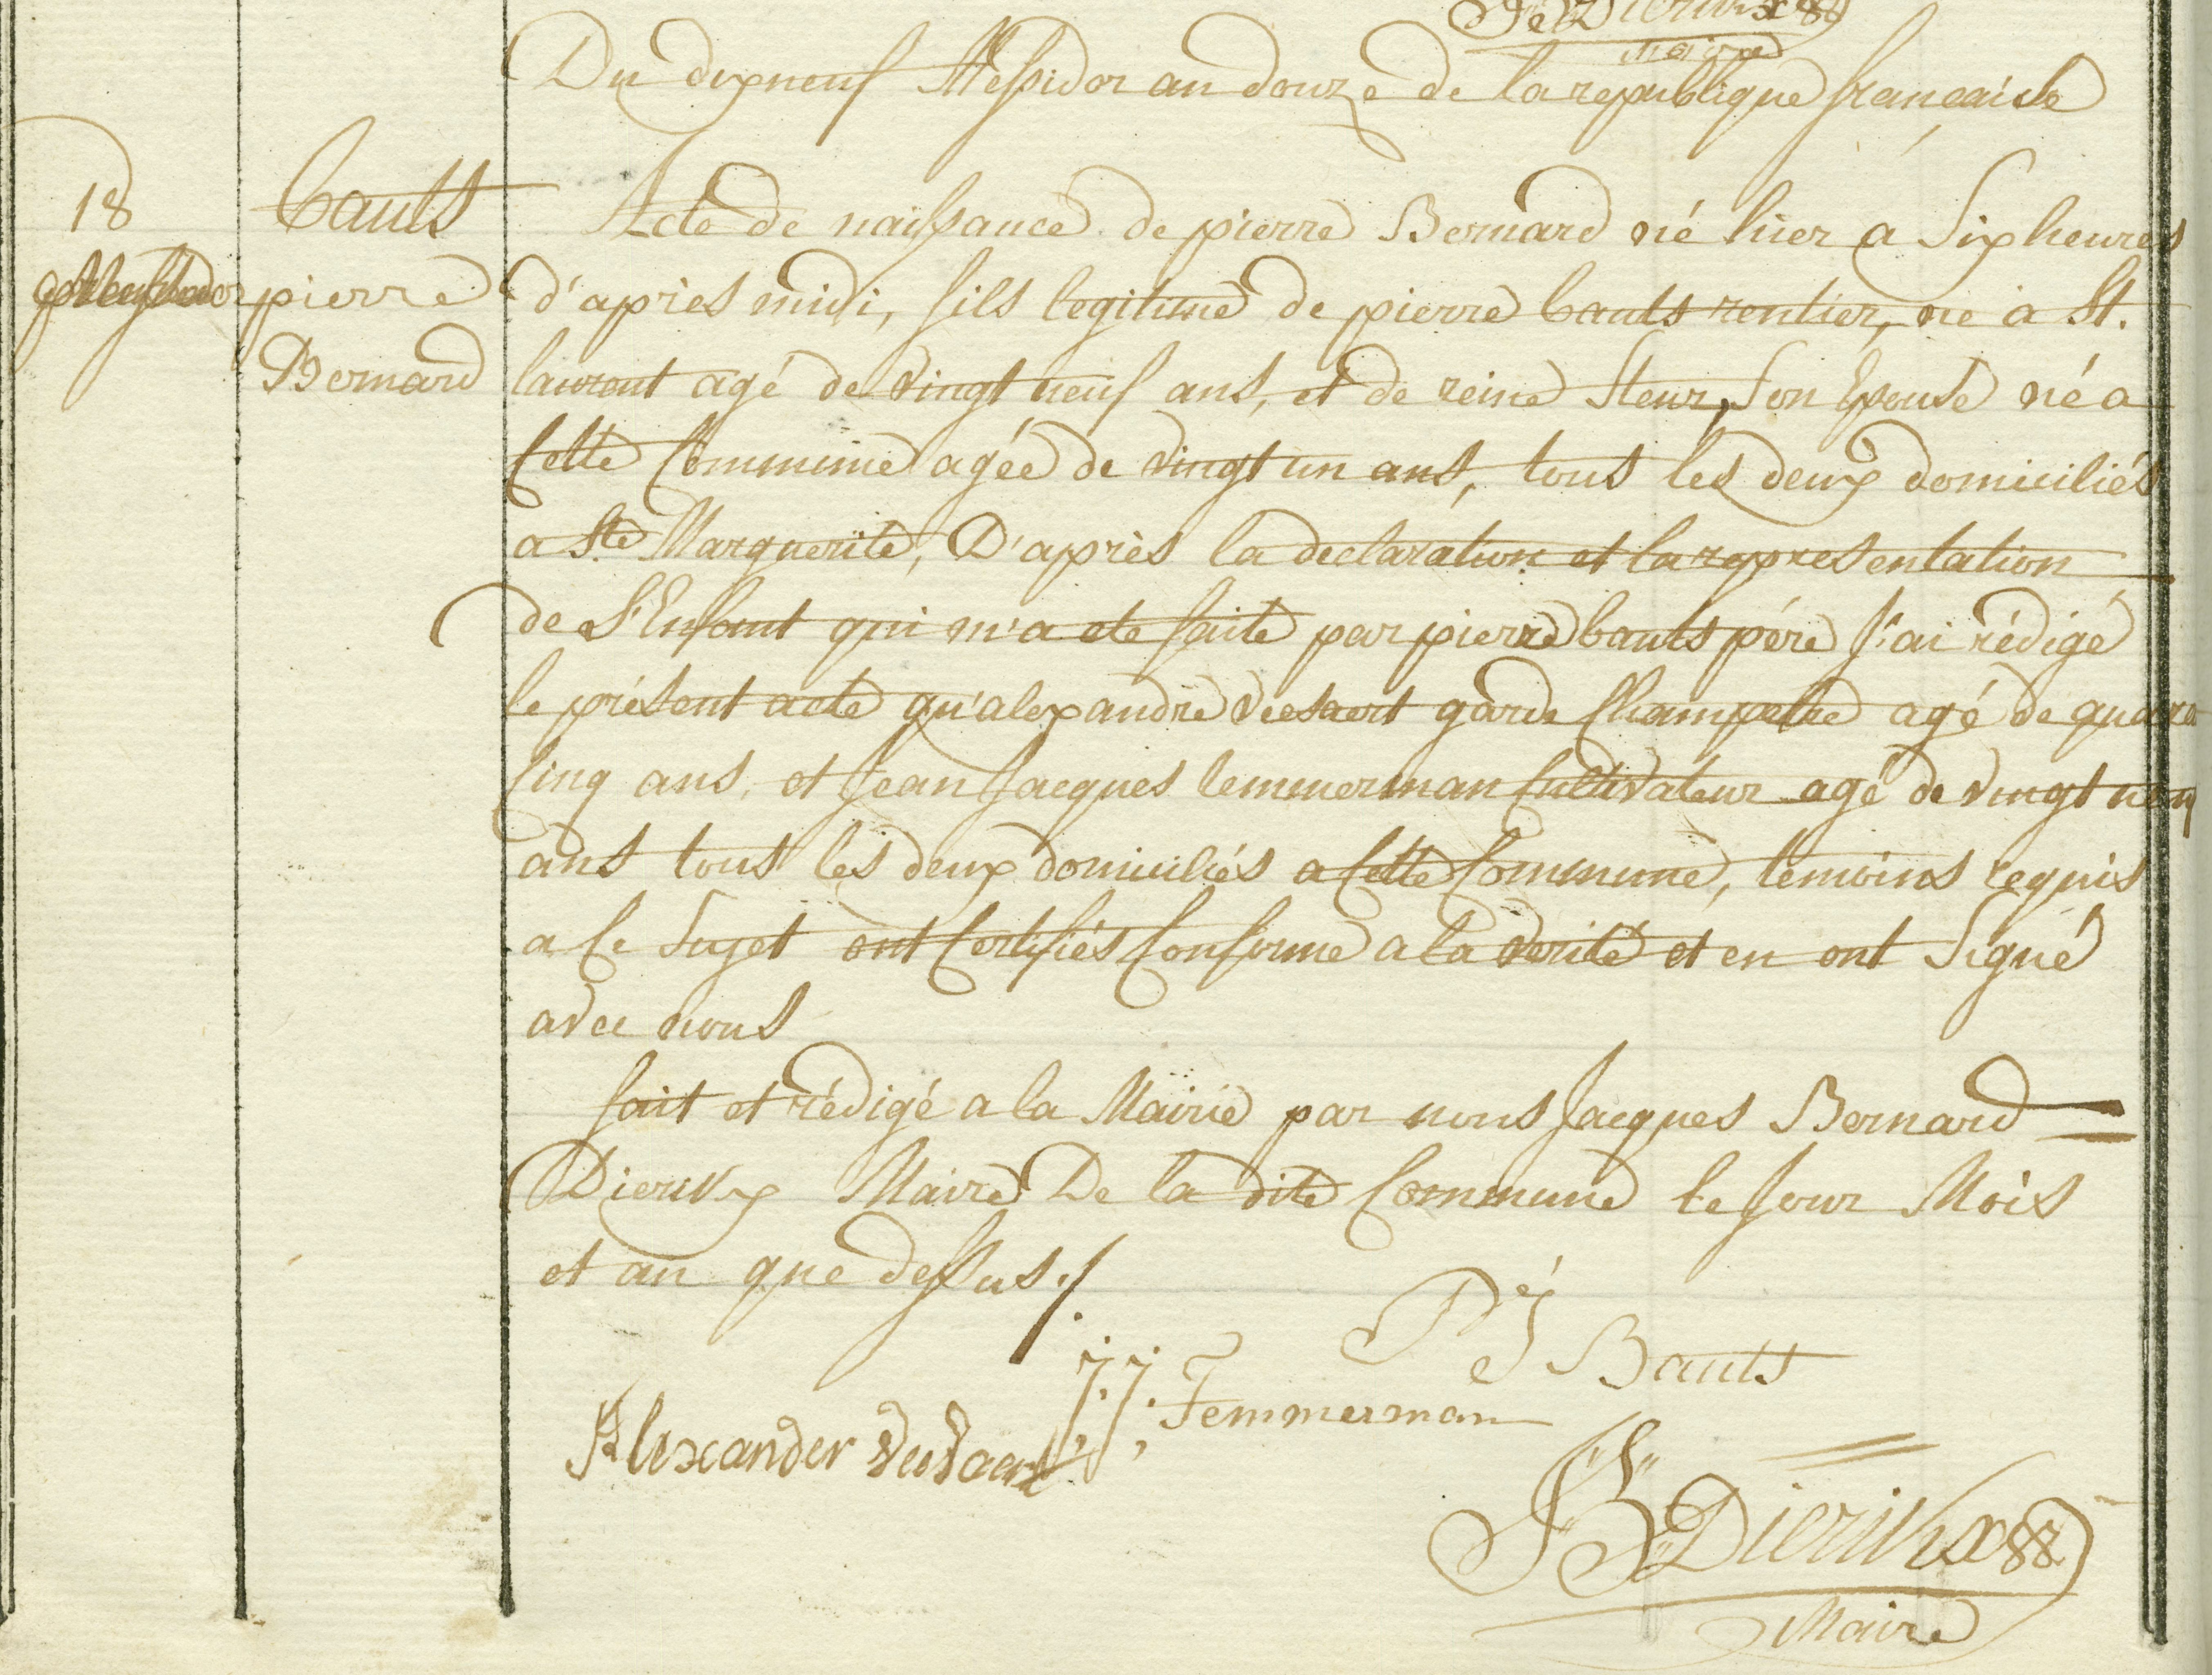 Maire
Du dixneuf Messidor an douze de la republique française
18
Bauts
pierre
Bernard
Acte de naissance de pierre Bernard né hier a Six heures
d'apries midi, fils legitime de pierre bauts rentier, né a St.
laurent agé de vingt neuf ans, et de reine Steur, Son Epouse né a
Cette Commune agée de vingt un ans, tous les deux domiciliés
a Ste Marguerite, D'après la declaration et la representation
de L'Enfant qui m'a ete faite par pierre bauts pére J'ai rédigé
le présent acte qu'alexandre garde Champetre agé de quara
Cinq ans, et Jean Jacques temmerman Cultivateur agé de vingt neuf
ans tous les deux domiciliés a Cette Commune, temoins requis
a Ce Sujet ont Certifiés Conforme a la verité et en ont Signé
avec nous
fait et rédigé a la Mairie par nous Jacques Bernard
Dierikx Maire De la dite Commune le Jour Mois
et an que dessus ./.
Pé J Bauts
J: J: Temmerman
Alexander
JB Dierikx
Maire